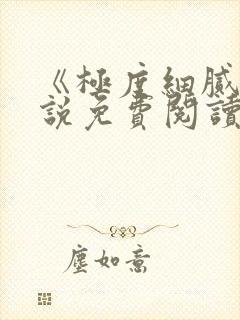 《極度細膩
說免費閱讀
塵如意